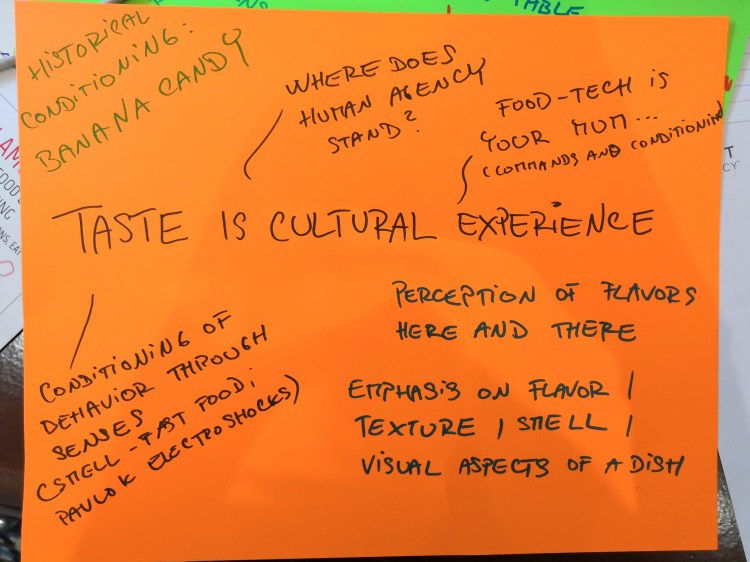 TABLE
HISTORICAL
CONDITIONING:
BANANA CANDY
WHERE DOES
HUMAN AGENCY
STAND?
FOOD-TECH IS
YOUR MUM...
(COMMANDS AND CONDITIONING
TASTE IS CULTURAL EXPERIENCE
PERCEPTION OF FLAVORS
HERE AND THERE
EMPHASIS ON FLAVOR /
TEXTURE / SMELL /
VISUAL ASPECTS OF A DISH
CONDITIONING OF
BEHAVIOR THROUGH
SENSES
(SMELL - FAST FOOD;
PAVLOK ELECTROSHOCKS)